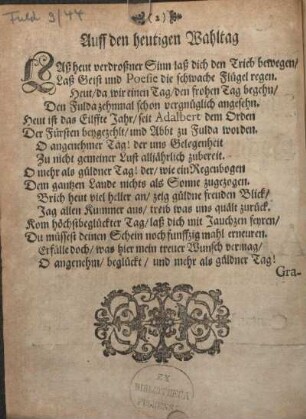 Fuld 9/44
(2)
Auff den heutigen Wahltag
LAß heut verdroßner Sinn laß dich den Trieb bewegen/
Laß Geist und Poesie die schwache Flügel regen.
Heut/ da wir einen Tag/ den frohen Tag begehn/
Den Fulda zehnmal schon vergnüglich angesehn.
Heut ist das Eilffte Jahr/ seit Adalbert dem Orden
Der Fürsten beygezehlt/ und Abbt zu Fulda worden.
O angenehmer Tag! der uns Gelegenheit
Zu nicht gemeiner Lust alljährlich zubereit.
O mehr als güldner Tag! der/ wie ein Regenbogen
Dem gantzen Lande nichts als Sonne zugezogen.
Brich heut viel heller an/ zeig güldne freuden Blick/
Jag allen Kummer aus/ treib was uns quält zurück.
Kom höchstbeglückter Tag/ laß dich mit Jauchzen feyren/
Du müssest deinen Schein noch funffzig mahl erneuren.
Erfülle doch/ was hier mein treuer Wunsch vermag/
O angenehm/ beglückt/ und mehr als güldner Tag!
Gra-
EX
BIBLIOTHECA